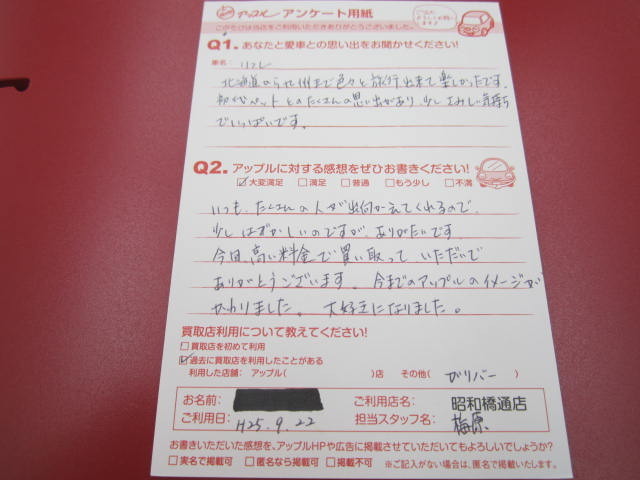 アップル アンケート用紙
このたびは当店をご利用いただきありがとうございました。
Q1. あなたと愛車との思い出をお聞かせください!
車名:
北海道から九州まで色々と旅行出来て楽しかったです。
初代ペットとのたくさんの思い出があり少しさみしい気持ち
でいっぱいです。
Q2. アップルに対する感想をぜひお書きください!
☑大変満足 □満足 □普通 □もう少し □不満
いつも、たくさんの人が出向かえてくれるので、
少しはずかしいのですが、ありがたいです
今回、高い料金で買い取って いただいで
ありがとうございます。 今までのアップルのイメージが
かわりました。 大好きになりました。
買取店利用について教えてください!
□買取店を初めて利用
☑過去に買取店を利用したことがある
利用した店舗: アップル( )店 その他( ガリバー )
お名前: ご利用店名: 昭和橋通店
ご利用日: H25.9.22 担当スタッフ名: 梅原
お書きいただいた感想を、アップルHPや広告に掲載させていただいてもよろしいでしょうか?
□実名で掲載可 □匿名なら掲載可 □掲載不可 ※ご記入がない場合は、匿名で掲載いたします。